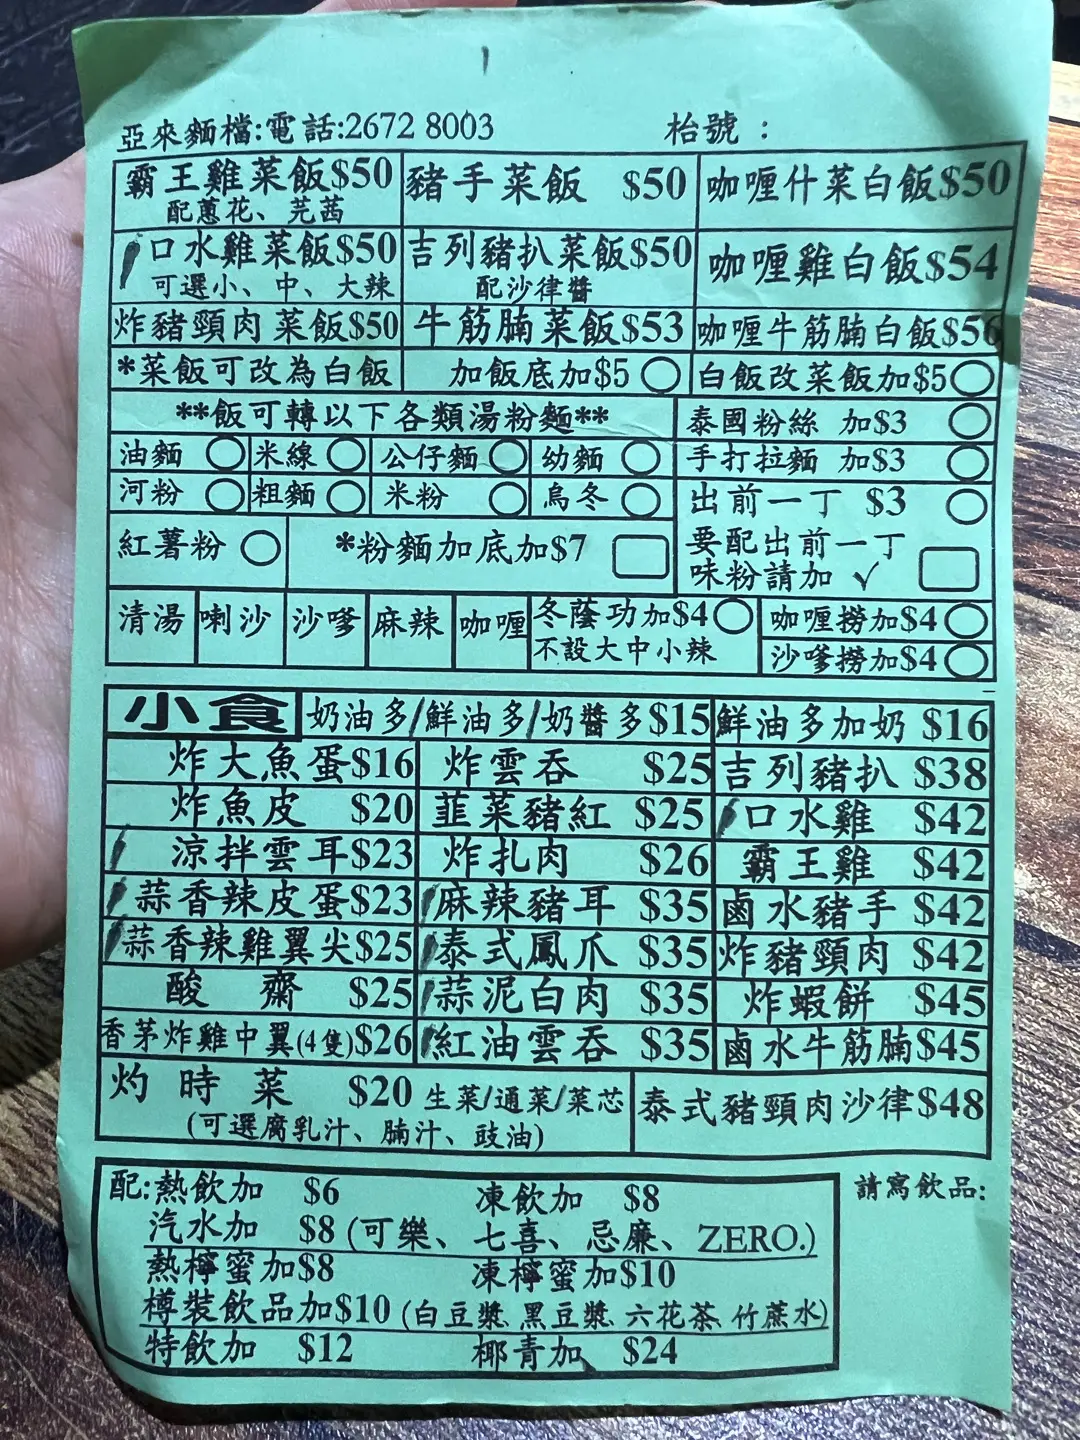 亞來麵檔:電話:2672 8003 枱號：
霸王雞菜飯$50 豬手菜飯 $50 咖喱什菜白飯$50
配蔥花、芫茜
口水雞菜飯$50 吉列豬扒菜飯$50 咖喱雞白飯$54
可選小、中、大辣 配沙律醬
炸豬頸肉菜飯$50 牛筋腩菜飯$53 咖喱牛筋腩白飯$56
*菜飯可改為白飯 加飯底加$5 白飯改菜飯加$5
**飯可轉以下各類湯粉麵** 泰國粉絲 加$3
油麵 米線 公仔麵 幼麵 手打拉麵 加$3
河粉 粗麵 米粉 烏冬 出前一丁 $3
紅薯粉 *粉麵加底加$7 要配出前一丁
味粉請加 ✓
清湯 喇沙 沙嗲 麻辣 咖喱 冬蔭功加$4 咖喱撈加$4
不設大中小辣 沙嗲撈加$4
小食 奶油多/鮮油多/奶醬多$15 鮮油多加奶 $16
炸大魚蛋$16 炸雲吞 $25 吉列豬扒 $38
炸魚皮 $20 韮菜豬紅 $25 口水雞 $42
涼拌雲耳$23 炸扎肉 $26 霸王雞 $42
蒜香辣皮蛋$23 麻辣豬耳 $35 鹵水豬手 $42
蒜香辣雞翼尖$25 泰式鳳爪 $35 炸豬頸肉 $42
酸齋 $25 蒜泥白肉 $35 炸蝦餅 $45
香茅炸雞中翼(4隻)$26 紅油雲吞 $35 鹵水牛筋腩$45
灼時菜 $20 生菜/通菜/菜芯 泰式豬頸肉沙律$48
(可選腐乳汁、腩汁、豉油)
配:熱飲加 $6 凍飲加 $8 請寫飲品:
汽水加 $8 (可樂、七喜、忌廉、ZERO.)
熱檸蜜加$8 凍檸蜜加$10
樽裝飲品加$10 (白豆漿、黑豆漿、六花茶、竹蔗水)
特飲加 $12 椰青加 $24